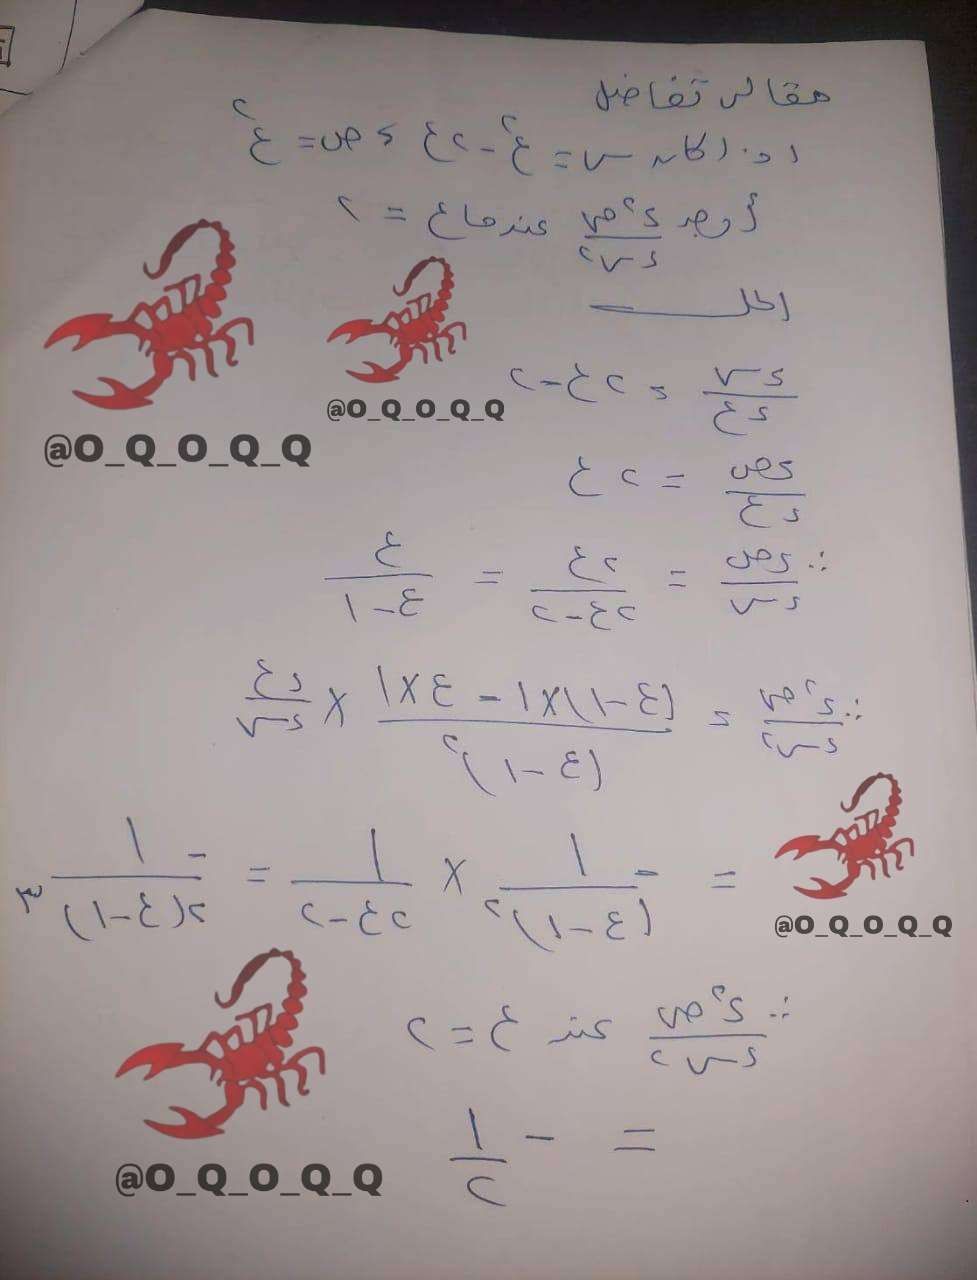 مقالى تفاضل
إذا كان س = ع٢ - ٢ع ، ص = ع٢
أوجد د٢ص/دس٢ عندما ع = ٢
الحل
دس/دع = ٢ع - ٢
دص/دع = ٢ع
∴ دص/دس = ٢ع/(٢ع - ٢) = ع/(ع - ١)
∴ د٢ص/دس٢ = ((ع - ١)×١ - ع×١)/(ع - ١)٢ × دع/دس
= -١/(ع - ١)٢ × ١/(٢ع - ٢) = -١/٢(ع - ١)٣
∴ د٢ص/دس٢ عند ع = ٢
= - ١/٢
@O_Q_O_Q_Q
@O_Q_O_Q_Q
@O_Q_O_Q_Q
@O_Q_O_Q_Q